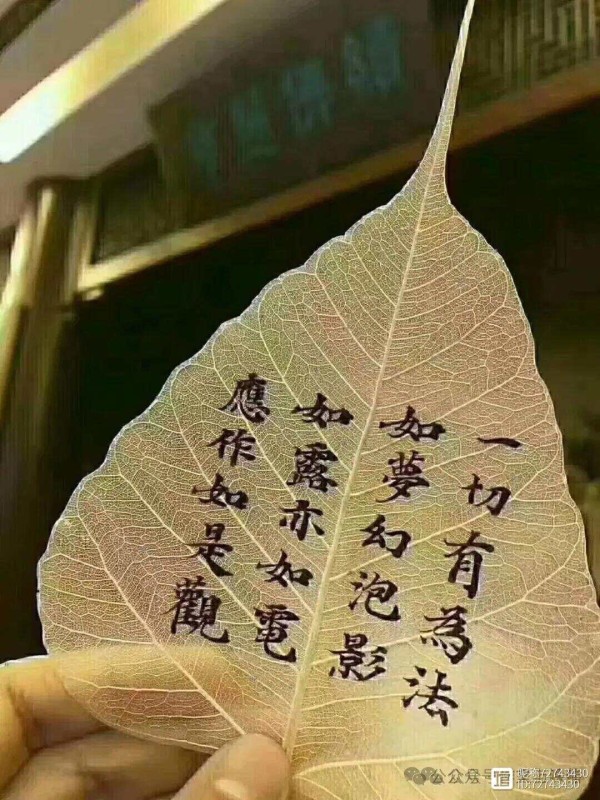 一切有為法
如夢幻泡影
如露亦如電
應作如是觀
公众号
昵称72743430
ID:72743430